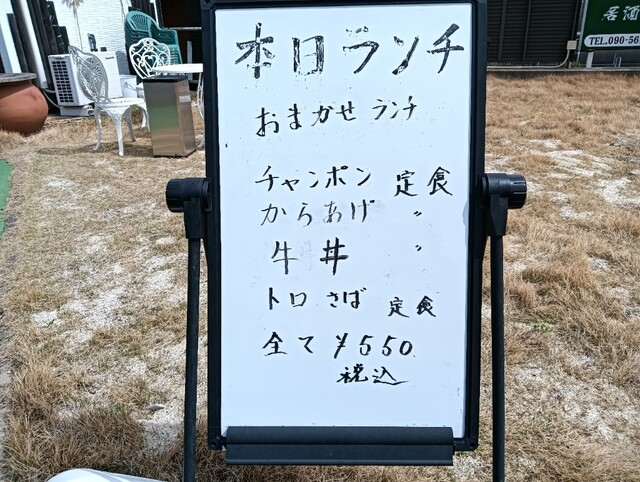 本日ランチ
おまかせランチ
チャンポン 定食
からあげ 〃
牛丼 〃
トロさば 定食
全て ¥550
税込
居酒
TEL.090-56